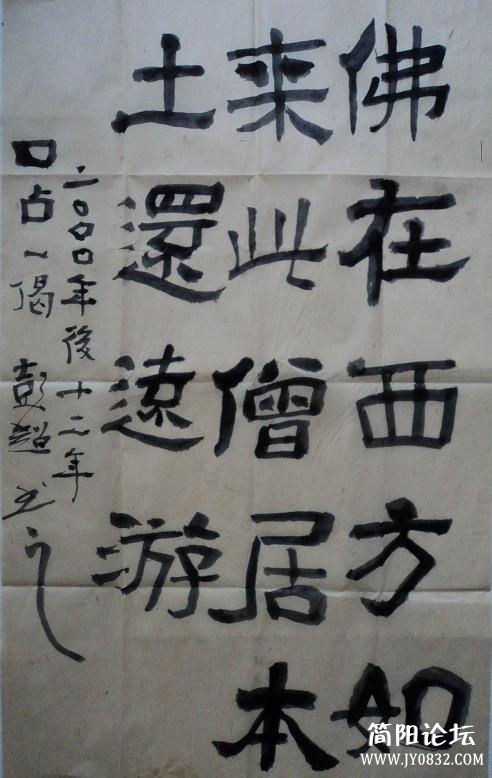 佛在西方如
来此僧居本
土還遠游
二〇〇〇年後十二年
口占一偈 彭超书之
简阳论坛
www.JY0832.com